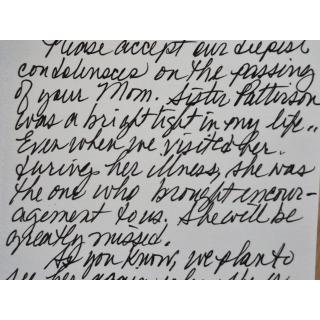 Please accept our deepist
condolensces on the passing
of your Mom. Sister Patterson
was a bright light in my life..
Even when we visited her
during her illness, she was
the one who brought encour-
agement to us. She will be
greatly missed.
As you know, we plan to
see her again when the